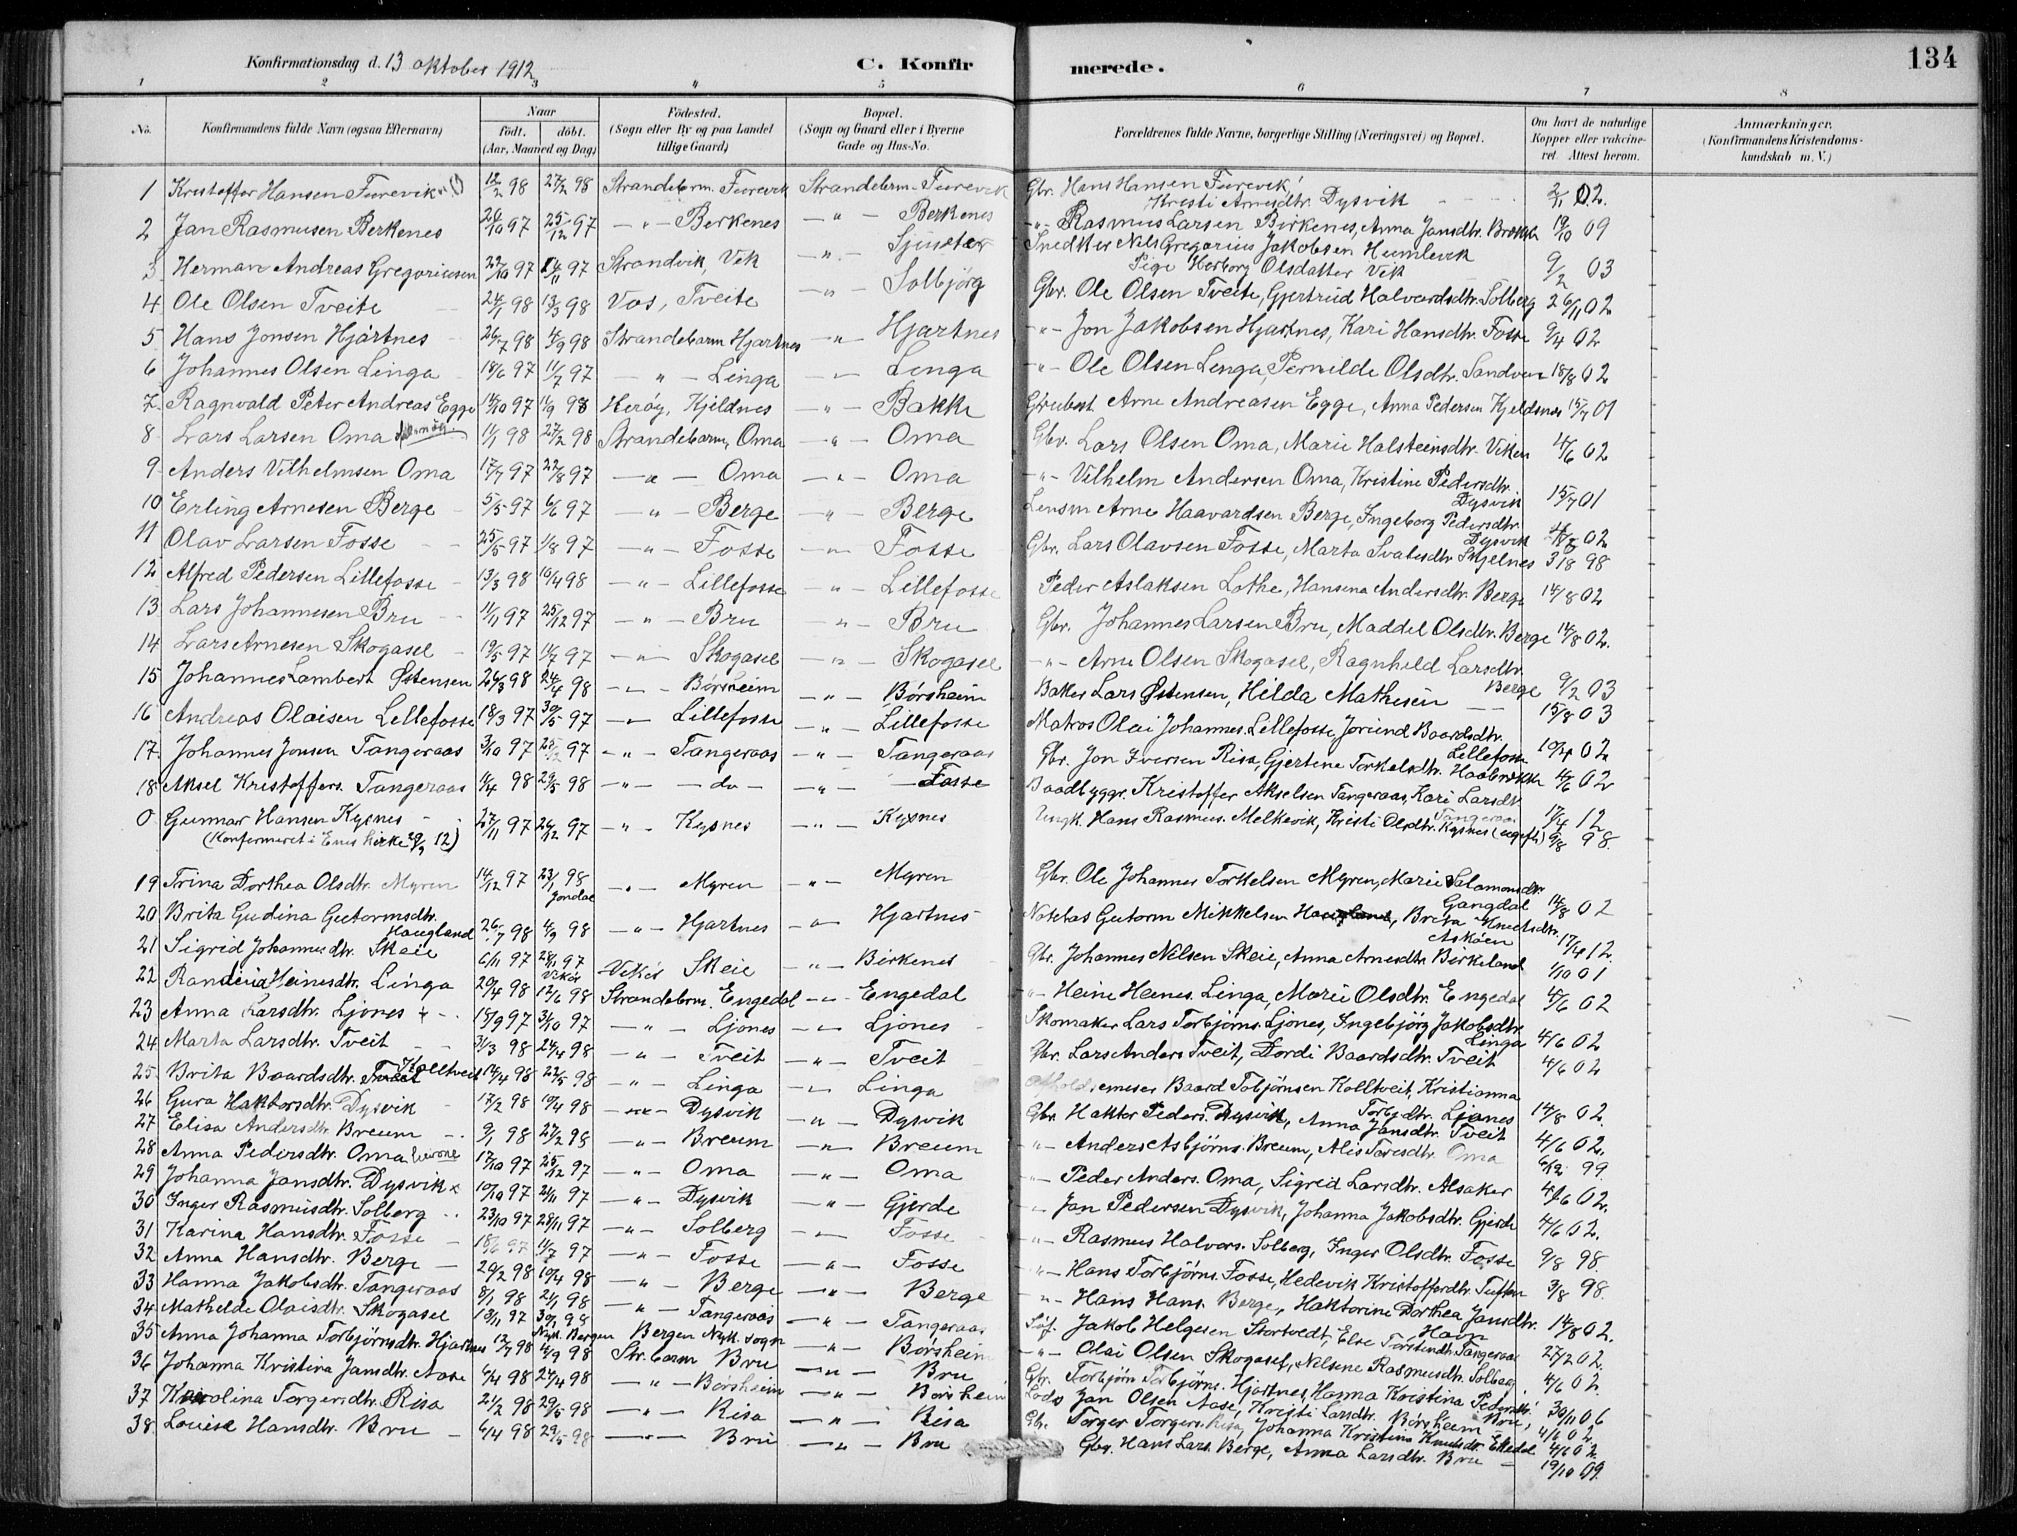 134
Konfirmationsdag d. 13 oktober 1912
C. Konfirmerede.
1 2 3 4 5 6 7 8
No. Konfirmandens fulde Navn (ogsaa Efternavn) Naar født. døbt. (Aar, Maaned og Dag) Födested. (Sogn eller By og paa Landet tillige Gaard) Bopæl. (Sogn og Gaard eller i Byerne Gade og Hus-No. Forældrenes fulde Navne, borgerlige Stilling (Næringsvei) og Bopæl. Om havt de naturlige Kopper eller vakcineret Attest herom. Anmærkninger. (Konfirmandens Kristendomskundskab m. V.)
1 Kristoffer Hansen Furevik 12/2 98 27/2 98 Strandebrm. Furevik Strandebrm. Furevik Gbr. Hans Hansen Furevik, Kristi Arnesdtr. Dysvik 02.
2 Jan Rasmusen Berkenes 97 25/12 97 -"- Berkenes -"- Berkenes -"- Rasmus Larsen Birkenes, Anna Jansdtr. 19/10 09
3 Herman Andreas Gregoriussen 97 97 Strandvik, Vik -"- Snedker Nils Gregorius Jakobsen Humlevik Pige Herborg Olsdatter Vik 9/2 03
4 Ole Olsen Tveite 24/1 98 13/3 98 Vos, Tveite -"- Solbjørg Gbr. Ole Olsen Tveite, Gjertrud Halvardsdtr. Solberg 26/11 02
5 Hans Jonsen Hjártnes 26/7 98 4/9 98 Strandebarm Hjartnes -"- Hjartnes -"- Jon Jakobsen Hjartnes, Kari Hansdtr. Fosse 9/4 02
6 Johannes Olsen Linga 18/6 97 11/7 97 -"- Linga -"- Linga -"- Ole Olsen Linga, Pernilde Olsdtr. Sandven 18/8 02
7. Ragnvald Peter Andreas Egge 14/10 97 1/9 98 Herøy, Kjeldnes -"- Bakke Arne Andreasen Egge, Anna Pedersen Kjeldsnes 15/7 01
8 Lars Larsen Oma 11/1 98 27/2 98 Strandebarm, Oma -"- Oma Gbr. Lars Olsen Oma, Marie Halsteinsdtr. Viken 4/6 02
9 Anders Vilhelmsen Oma 17/7 97 22/8 97 -"- Oma -"- Oma -"- Vilhelm Andersen Oma, Kristine Pedersdtr. Dysvik 15/7 01
10 Erling Arnesen Berge 5/5 97 6/6 97 -"- Berge -"- Berge Lensm Arne Haavardsen Berge, Ingeborg Pedersdtr. Dysvik 02
11 Olav Larsen Fosse 25/5 97 1/8 97 -"- Fosse -"- Fosse Gbr. Lars Olavsen Fosse, Marta Skjelnes 31/8 98
12 Alfred Pedersen Lillefosse 13/3 98 10/4 98 -"- Lillefosse -"- Lillefosse Peder Aslaksen Lothe, Hansena Andersdtr. Berge 14/8 02
13 Lars Johannesen Bru 11/11 97 25/12 97 -"- Bru -"- Bru Gbr. Johannes Larsen Bru, Maddel Olsdtr. Berge 14/8 02.
14 Lars Arnesen Skogasel 19/5 97 11/7 97 -"- Skogasel -"- Skogasel -"- Arne Olsen Skogasel, Ragnhild Larsdtr. Berge 9/2 03
15 Johannes Lambert Østensen 26/3 98 24/4 98 -"- Børsheim -"- Børsheim Baker Lars Østensen, Hilda Mathesen 15/8 03
16 Andreas Olaisen Lillefosse 18/3 97 30/5 97 -"- Lillefosse -"- Lillefosse Matros Olai Johannes. Lillefosse, Jorund Baardsdtr. Lillefosse 10/4 02
17. Johannes Jonsen Tangeraas 3/10 97 97 -"- Tangeraas -"- Tangeraas Gbr. Jon Iversen Risa, Gjertine Torkelsdtr. 4/6 02
18 Aksel Kristoffers. Tangeraas 11/4 98 29/5 98 -"- -do- -"- Fosse Baadbyggr. Kristoffer Akselsen Tangeraas, Kari Larsdt. Tangeraas 17/4 12
0 Gunnar Hansen Kysnes (Konfirmeret i Enes kirke 12) 27/11 97 26/12 97 -"- Kysnes -"- Kysnes Ungk. Hans Rasmus. Melkevik, Kristi Olsdtr. Kysnes (ugift) 9/8 98.
19 Trina Dorthea Olsdtr. Myren 14/12 97 23/1 98 Jondal -"- Myren -"- Myren Gbr. Ole Johannes Torkelsen Myren, Marie Salamonsdtr Gangdal 14/8 02
20 Brita Gudina Gutormsdtr. Haugland 26/7 98 4/9 98 -"- Hjartnes -"- Hjartnes Gutorm Mikkelsen Haugland, Brita Knutsdtr. Askøen 17/4 12.
21 Sigrid Johannesdtr. Skeie 6/11 97 28/11 97 Vikør Vikør Skeie -"- Birkenes Gbr. Johannes Nilsen Skeie, Anna Arnesdtr. Birkeland 1/10 01
22 Randina Heinesdtr. Linga 20/4 98 12/6 98 Strandebrm. Engedal -"- Engedal -"- Heine Heines. Linga, Marie Olsdtr. Engedal 4/6 02
23 Anna Larsdtr. Ljones 15/9 97 31/10 97 -"- Ljones -"- Ljones Skomaker Lars Torbjørns. Ljones, Ingebjørg Jakobsdtr. Linga 4/6 02
24 Marta Larsdtr. Tveit 31/3 98 24/4 98 -"- Tveit -"- Tveit Gbr. Lars Anders Tveit, Dordi Baardsdtr. Tveit 4/6 02
25. Brita Baardsdtr. Kolltveit 14/4 98 22/5 98 -"- Linga -"- Linga Baard Tobjørnsen Kolltveit, Kristianna Torbjdtr. Ljones 14/8 02.
26 Gura Haktorsdtr. Dysvik 17/2 98 10/4 98 -"- Dysvik -"- Dysvik Gbr. Haktor Peders. Dysvik, Anna Jansdtr. Tveit 4/6 02.
27 Elisa Andersdtr. Breum 9/1 98 27/2 98 -"- Breum -"- Breum -"- Anders Asbjørns. Breum, Oma 99
28 Anna Pedersdtr. Oma 17/10 97 25/12 97 -"- Oma -"- Oma -"- Peder Anders. Oma, Sigrid Larsdtr. Alsaker 4/6 02.
29 Johanna Jansdtr. Dysvik 10/10 97 21/11 97 -"- Dysvik -"- Gjerde -"- Jan Pedersen Dysvik, Johanna Jakobsdtr. Gjerde 4/6 02.
30 Inger Rasmusdtr. Solberg 23/10 97 28/11 97 -"- Solberg -"- Fosse -"- Rasmus Halvors. Solberg, Inger Olsdtr. Fosse 9/8 98.
31 Karina Hansdtr. Fosse 97 11/7 97 -"- Fosse -"- Fosse -"- Hans Torbjørns. Fosse, Hedevik Kristofferdtr. Tuften 3/8 98.
32 Anna Hansdtr. Berge 20/2 98 10/4 98 -"- Berge -"- Berge -"- Hans Hans. Berge, Haktorine Dorthea Jansdtr. Havn 14/8 02.
33 Hanna Jakobsdtr. Tangeraas 8/1 98 98 -"- Tangeraas -"- Tangeraas Jakob Helgesen Stortvedt, Else Torstendtr. Tangeraas 27/2 02.
34 Mathilde Olaisdtr. Skogasel 13/11 97 30/1 98 Nyk. Bergen Bergen Nyk. sogn -"- Børsheim -"- Olai Olsen Skogasel, Nilsene Rasmusdtr. Solberg 4/6 02.
35 Anna Johanna Torbjørnsdtr. Hjartnes 12/7 98 4/9 98 Str.barm Bru -"- Bru Gbr. Torbjørn Torbjørns. Hjartnes, Hanna Kristina Pedersdtr. Bru, 30/11 06
36 Johanna Kristina Jansdtr. Aase 6/4 98 24/4 98 -"- Børsheim -"- Børsheim Lods Jan Olsen Aase, Kristi Larsdtr. Børsheim 4/6 02.
37 Karolina Torgersdtr. Risa 21/2 98 29/5 98 -"- Risa -"- Risa Gbr. Torger Torgers. Risa, Johanna Kristina Knutsdtr. 4/6 02.
38. Louise Hansdtr. Bru 6/4 98 29/5 98 -"- Bru -"- Bru Gbr. Hans Lars. Berge, Anna Larsdtr. Bru 19/10 09.